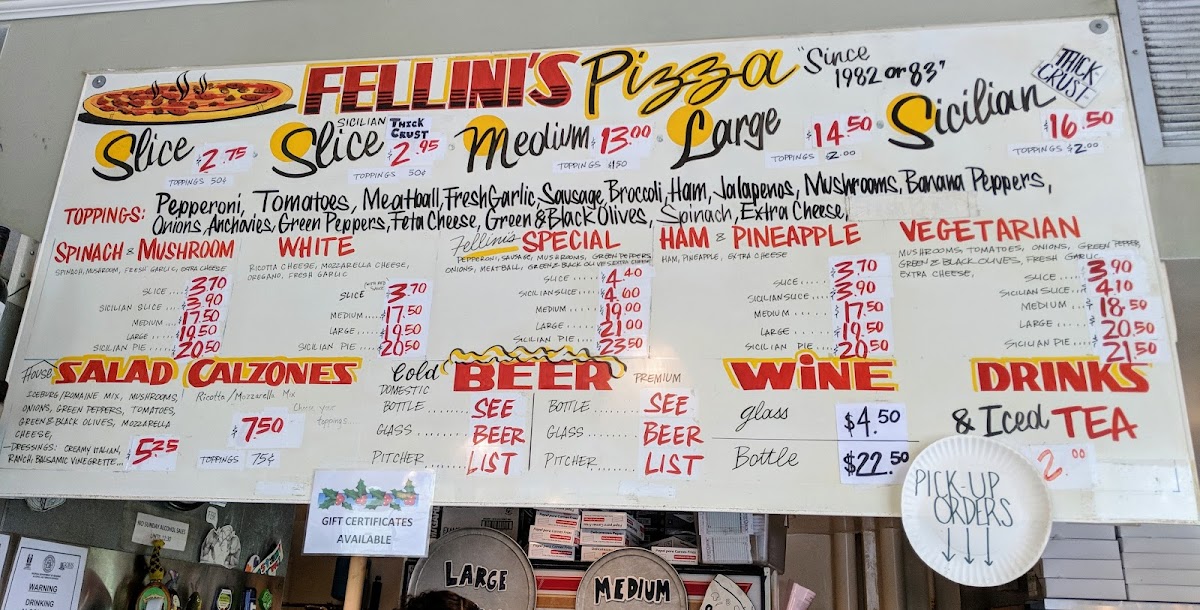 FELLINI'S Pizza "Since 1982 or 83"
THICK CRUST
Slice $2.75
TOPPINGS 50¢
SICILIAN THICK CRUST
Slice $2.95
TOPPINGS 50¢
Medium $13.00
TOPPINGS $1.50
Large $14.50
TOPPINGS $2.00
Sicilian $16.50
TOPPINGS $2.00
TOPPINGS: Pepperoni, Tomatoes, Meatball, Fresh Garlic, Sausage, Broccoli, Ham, Jalapenos, Mushrooms, Banana Peppers,
Onions, Anchovies, Green Peppers, Feta Cheese, Green & Black Olives, Spinach, Extra Cheese,
SPINACH & MUSHROOM
SPINACH, MUSHROOM, FRESH GARLIC, EXTRA CHEESE
SLICE.... 3.70
SICILIAN SLICE... 3.90
MEDIUM.... $17.50
LARGE.... $19.50
SICILIAN PIE.... $20.50
WHITE
RICOTTA CHEESE, MOZZARELLA CHEESE,
OREGANO, FRESH GARLIC
SLICE $3.70
MEDIUM... $17.50
LARGE... $19.50
SICILIAN PIE.... $20.50
Fellini's SPECIAL
PEPPERONI, SAUSAGE, MUSHROOMS, GREEN PEPPERS
ONIONS, MEATBALL, GREEN & BLACK OLIVES, EXTRA CHEESE
SLICE.... $4.40
SICILIAN SLICE... $4.60
MEDIUM.... $19.00
LARGE.... $21.00
SICILIAN PIE.... $23.50
HAM & PINEAPPLE
HAM, PINEAPPLE, EXTRA CHEESE
SLICE.... $3.70
SICILIAN SLICE... $3.90
MEDIUM.... $17.50
LARGE.... $19.50
SICILIAN PIE.... $20.50
VEGETARIAN
MUSHROOMS, TOMATOES, ONIONS, GREEN PEPPER,
GREEN & BLACK OLIVES, FRESH GARLIC
EXTRA CHEESE,
SLICE.... $3.90
SICILIAN SLICE.. $4.10
MEDIUM... $18.50
LARGE.... $20.50
SICILIAN PIE.... $21.50
House SALAD
ICEBURG/ROMAINE MIX, MUSHROOMS,
ONIONS, GREEN PEPPERS, TOMATOES,
GREEN & BLACK OLIVES, MOZZARELLA
CHEESE,
—DRESSINGS: CREAMY ITALIAN,
RANCH, BALSAMIC VINEGRETTE... $5.25
CALZONES
Ricotta/Mozzarella Mix
Choose your
toppings
$7.50
TOPPINGS 75¢
Cold BEER
DOMESTIC
BOTTLE....... SEE
GLASS....... BEER
PITCHER..... LIST
PREMIUM
BOTTLE....... SEE
GLASS....... BEER
PITCHER..... LIST
WINE
glass $4.50
Bottle $22.50
DRINKS
& Iced TEA
2.00
PICK-UP
ORDERS
GIFT CERTIFICATES
AVAILABLE
NO SUNDAY ALCOHOL SALES
WARNING
DRINKING
LARGE
MEDIUM